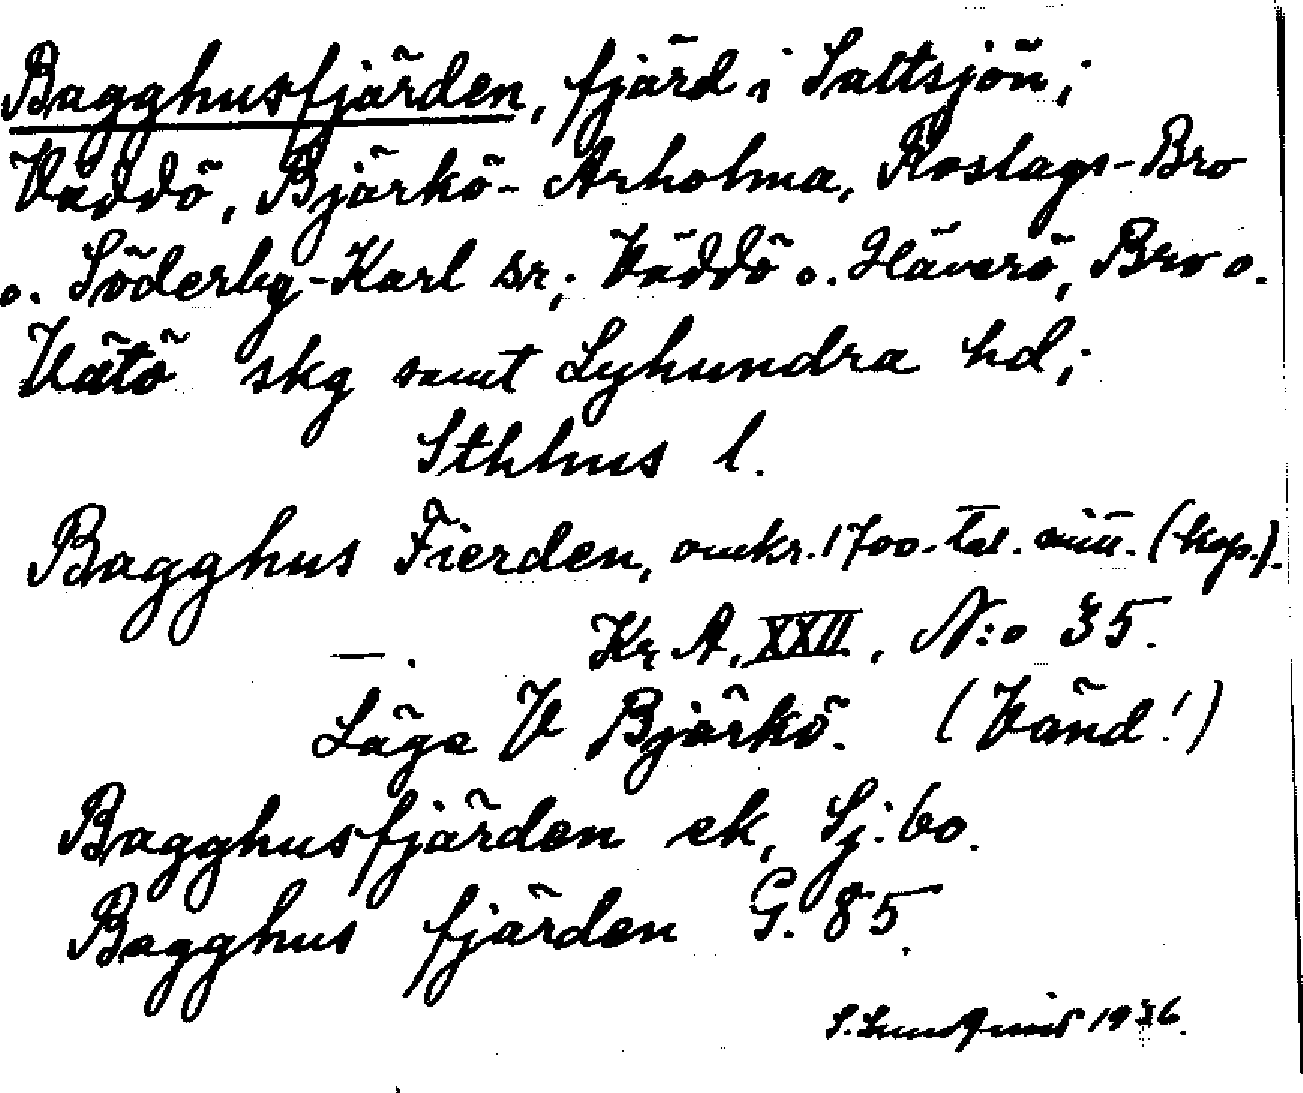 Bagghusfjärden, fjärd i Saltsjön;
Väddö, Björkö-Arholma, Roslags-Bro
o. Söderby-Karl sr; Väddö o. Häverö, Bro o.
Vätö skg samt Lyhundra hd;
Sthlms l.
Bagghus Fierden, omkr. 1700-tal. mitt. (kop.).
—. Kr. A. XXII. N:o 35.
Läge V Björkö. (Vänd!)
Bagghusfjärden ek, Sj: 60.
Bagghus fjärden G. 85.
S. Lundqvist 1936.